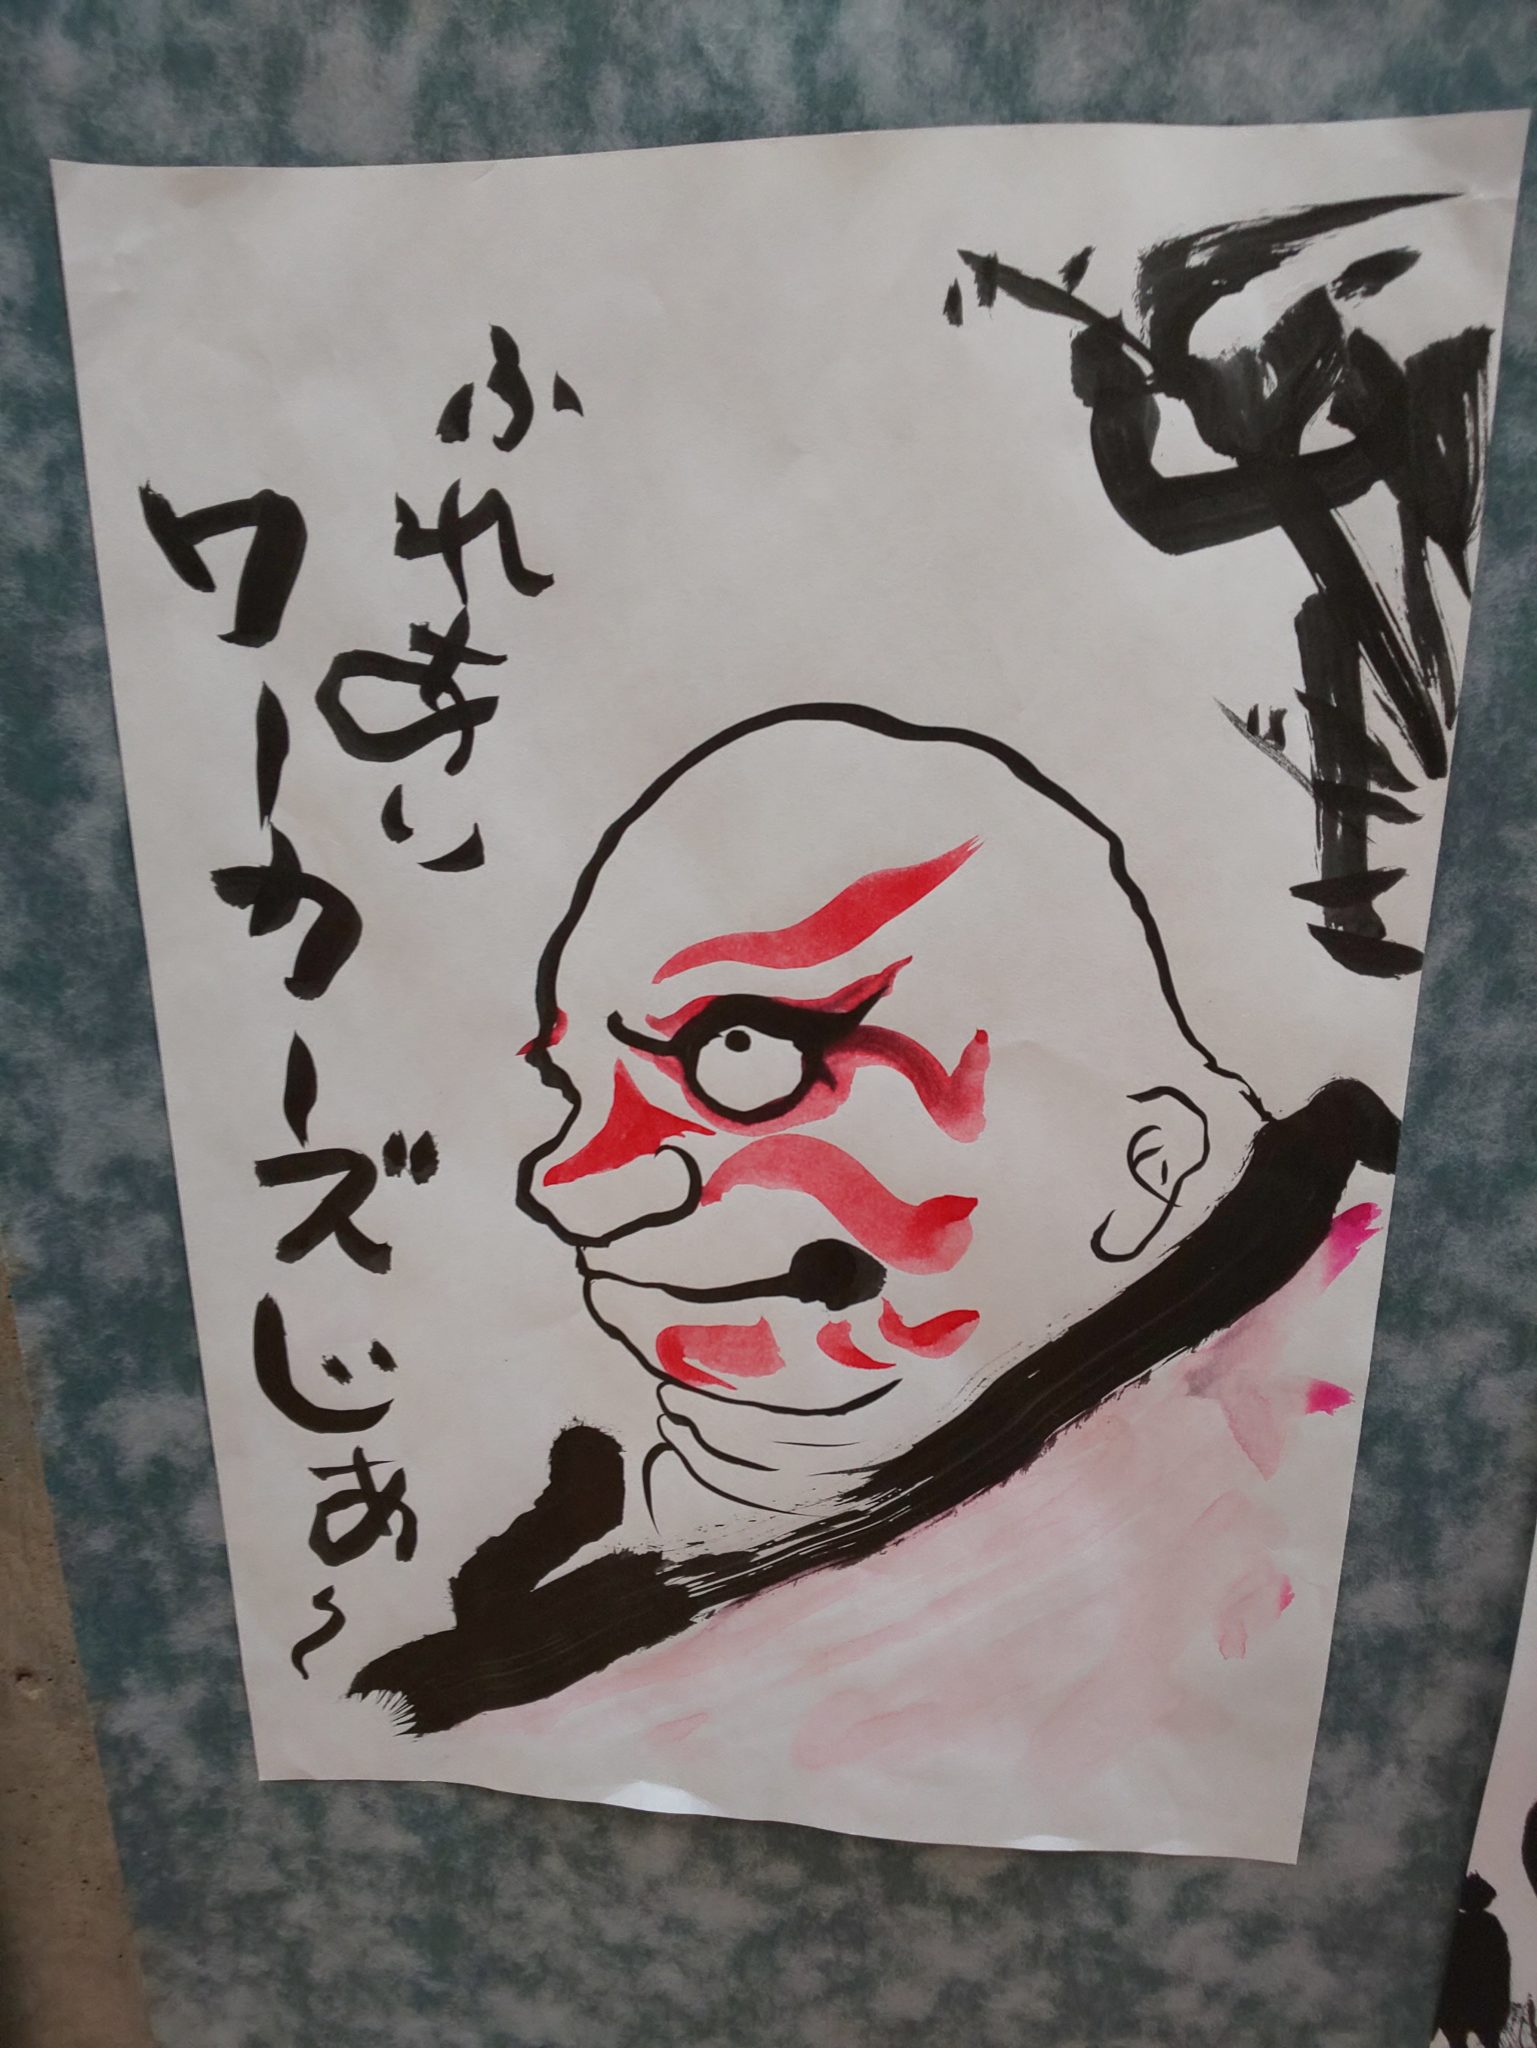 ふれあい
ワーカーズじゃあ～